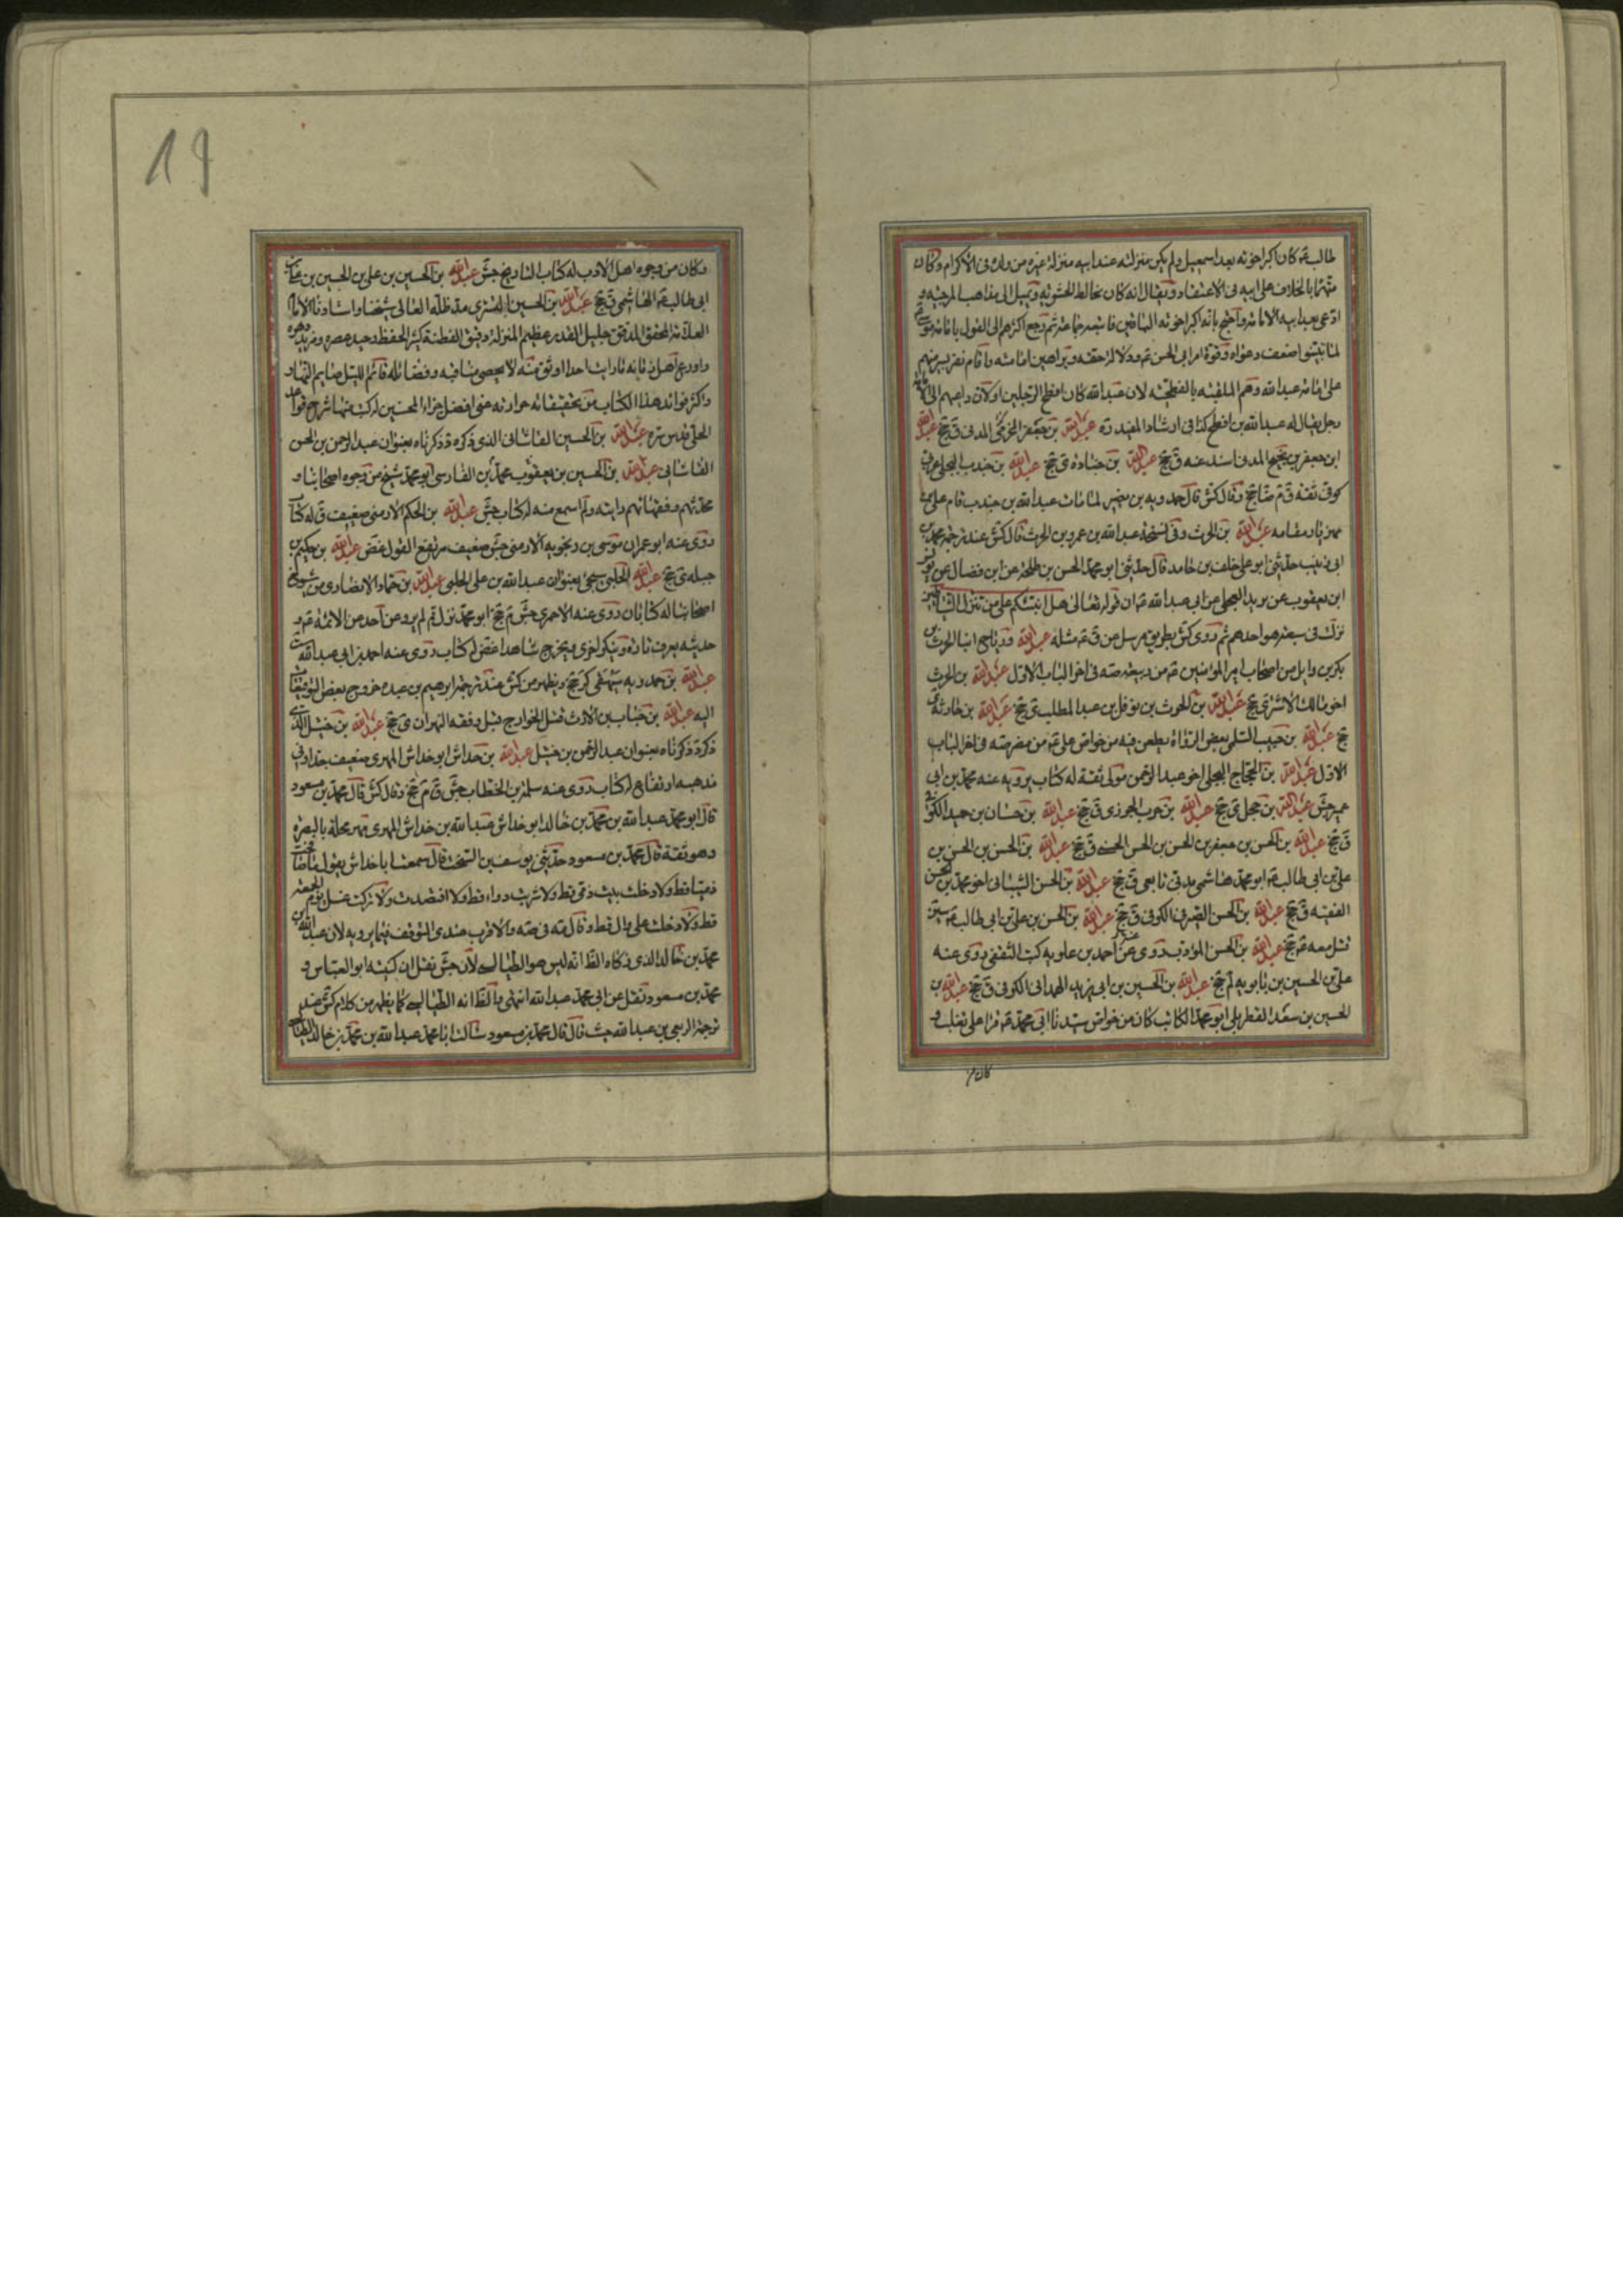 طالب ع كان اكبر اخوته بعد اسمعيل ولم يكن منزلته عند ابيه منزلة غيره من ولده فى الاكرام وكان
متهما بالخلاف على ابيه فى الاعتقاد ويقال انه كان يخالط الحشوية ويميل الى مذاهب المرجئة و
ادعى بعد ابيه الامامة واحتج بانه اكبر اخوته الباقين فاتبعه جماعة ثم رجع اكثرهم الى القول بامامة موسى ع
لما تبينوا ضعف دعواه وقوة امر ابى الحسن ع ودلالة حقه وبراهين امامته واقام نفر يسير منهم
على امامة عبد الله وهم الملقبة بالفطحية لان عبد الله كان افطح الرجلين او لان داعيهم الى الامامة
رجل يقال له عبد الله بن افطح كذا فى ارشاد المفيد ره عبد الله بن جعفر المخرمى المدنى ق جخ عبد الله
ابن جعفر بن نجيح المدنى اسند عنه ق جخ عبد الله بن جنادة ى جخ عبد الله بن جندب البجلى عربى
كوفى ثقة ق م ضا جخ وقال كش قال حمدويه بن نصير لما مات عبد الله بن جندب قام على بن
مهزيار مقامه عبد الله بن الحرث وفى نسخة عبد الله بن عمرو بن الحرث قال كش عند ترجمة محمد بن
ابى زينب حدثنى ابو على خلف بن حامد قال حدثنى ابو محمد الحسن بن طلحة عن ابن فضال عن يونس
ابن يعقوب عن بريد العجلى عن ابى عبد الله ع ان قوله تعالى هل انبئكم على من تنزل الشياطين
نزلت فى سبعة هو احدهم ثم روى كش بطريق مرسل عن ق ع مثله عبد الله ورباح ابنا الحرث بن
بكر بن وايل من اصحاب امير المؤمنين ع من ربيعة صه فى اخر الباب الاول عبد الله بن الحرث
اخو مالك الاشتر ى جخ عبد الله بن الحرث بن نوفل بن عبد المطلب ى جخ عبد الله بن حارثة ى
جخ عبد الله بن حبيب السلمى بعض الرواة يطعن فيه من خواص على ع من مضر صه فى اخر الباب
الاول عبد الله بن الحجاج البجلى اخو عبد الرحمن مولى ثقة له كتاب يرويه عنه محمد بن ابى
عمير جش عبد الله بن حجل ى جخ عبد الله بن حرب الجوزى ق جخ عبد الله بن حسان بن حميد الكوفى
ق جخ عبد الله بن الحسن بن جعفر بن الحسن بن الحسن الحسنى ق جخ عبد الله بن الحسن بن الحسن بن
على بن ابى طالب ع ابو محمد هاشمى مدنى تابعى ق جخ عبد الله بن الحسن الشيبانى اخو محمد بن الحسن
الفقيه ق جخ عبد الله بن الحسن الصيرفى الكوفى ق جخ عبد الله بن الحسن بن على بن ابى طالب ع سين
قتل معه ع جخ عبد الله بن الحسن المؤدب روى عن احمد بن علويه كتب الثقفى روى عنه
على بن الحسين بن بابويه لم جخ عبد الله بن الحسين بن ابى يزيد الهمدانى الكوفى ق جخ عبد الله بن
الحسين بن سعد القطربلى ابو محمد الكاتب كان من خواص سيدنا ابى محمد ع قرا على ثعلب و
كان من
19
وكان من وجوه اهل الادب له كتاب التاريخ جش عبد الله بن الحسين بن على بن الحسين بن على بن
ابى طالب ع الهاشمى ق جخ عبد الله بن الحسين التسترى مد ظله العالى شيخنا واستادنا الامام
العلامة المحقق المدقق جليل القدر عظيم المنزلة دقيق الفطنة كثير الحفظ وحيد عصره وفريد دهره
واورع اهل زمانه ما رايت احدا اوثق منه لا يحصى مناقبه وفضائله قائم الليل صايم النهار
واكثر فوائد هذا الكتاب من تحقيقاته جزاه الله عنى افضل جزاء المحسنين له كتب منها شرح قواعد
الحلى قدس سره عبد الله بن الحسين القاشانى الذى ذكره د ذكرناه بعنوان عبد الرحمن بن الحسن
القاشانى عبد الله بن الحسين بن يعقوب محمد بن الفارسى ابو محمد شيخ من وجوه اصحابنا و
محدثيهم وفقهائهم رايته ولم اسمع منه له كتاب جش عبد الله بن الحكم الارمنى ضعيف ق له كتاب
روى عنه ابو عمران موسى بن رنجويه الارمنى جش ضعيف مرتفع القول غض عبد الله بن حكيم بن
جبلة ى جخ عبد الله الحلبى سيجئ بعنوان عبد الله بن على الحلبى عبد الله بن حماد الانصارى من شيوخ
اصحابنا له كتابان روى عنه الاحمرى جش م جخ ابو محمد نزل قم لم يرو عن احد من الائمة ع و
حديثه يعرف تارة وينكر اخرى ويخرج شاهدا غض له كتاب روى عنه احمد بن ابى عبد الله ست
عبد الله بن حمدويه بيهقى كر جخ ويظهر من كش عند ترجمة ابرهيم بن عبده خروج بعض التوقيعات
اليه عبد الله بن خباب بن الارت قتل الخوارج قبل وقعه النهروان ى جخ عبد الله بن خثيل الذى
ذكره د ذكرناه بعنوان عبد الرحمن بن خثيل عبد الله بن خداش ابو خداش المهرى ضعيف جدا وفى
مذهبه ارتفاع له كتاب روى عنه سلمة بن الخطاب جش ق م جخ وقال كش قال محمد بن مسعود
قال ابو محمد عبد الله بن محمد بن خالد ابو خداش عبد الله بن خداش المهرى مهر محلة بالبصرة
وهو ثقة قال محمد بن مسعود حدثنى يوسف بن السخت قال سمعت ابا خداش يقول ما صافحت
ذميا قط ولا دخلت بيت ذمى قط ولا شربت دواء قط ولا افتصدت ولا تركت غسل يوم الجمعة
قط ولا دخلت على وال قط وقال مه فى صه والاقرب عندى التوقف فيما يرويه لان عبد الله بن
محمد بن خالد الذى زكاه الظ انه ليس هو الطيالسى لان جش نقل ان كنيته ابو العباس و
محمد بن مسعود نقل عن ابى محمد عبد الله انتهى والظ انه الطيالسى كما يظهر من كلام كش عند
ترجمة الربعى بن عبد الله حيث قال قال محمد بن مسعود سالت ابا محمد عبد الله بن محمد بن خالد الطيالسى